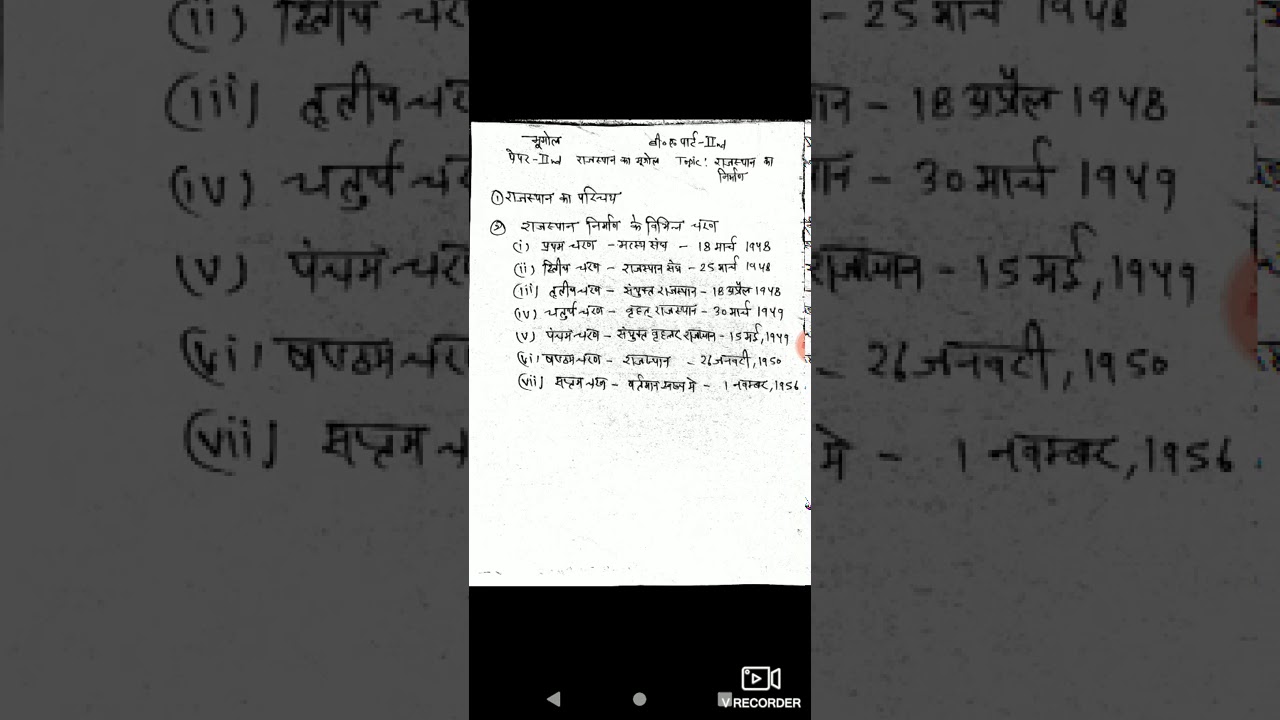 भूगोल बी०ए० पार्ट-IInd
पेपर-IInd राजस्थान का भूगोल Topic: राजस्थान का
निर्माण
① राजस्थान का परिचय
② राजस्थान निर्माण के विभिन्न चरण
(i) प्रथम चरण - मत्स्य संघ - 18 मार्च 1948
(ii) द्वितीय चरण - राजस्थान संघ - 25 मार्च 1948
(iii) तृतीय चरण - संयुक्त राजस्थान - 18 अप्रैल 1948
(iv) चतुर्थ चरण - वृहत् राजस्थान - 30 मार्च 1949
(v) पंचम चरण - संयुक्त वृहत्तर राजस्थान - 15 मई, 1949
(vi) षष्ठम चरण - राजस्थान - 26 जनवरी, 1950
(vii) सप्तम चरण - वर्तमान स्वरूप में - 1 नवम्बर, 1956
V RECORDER